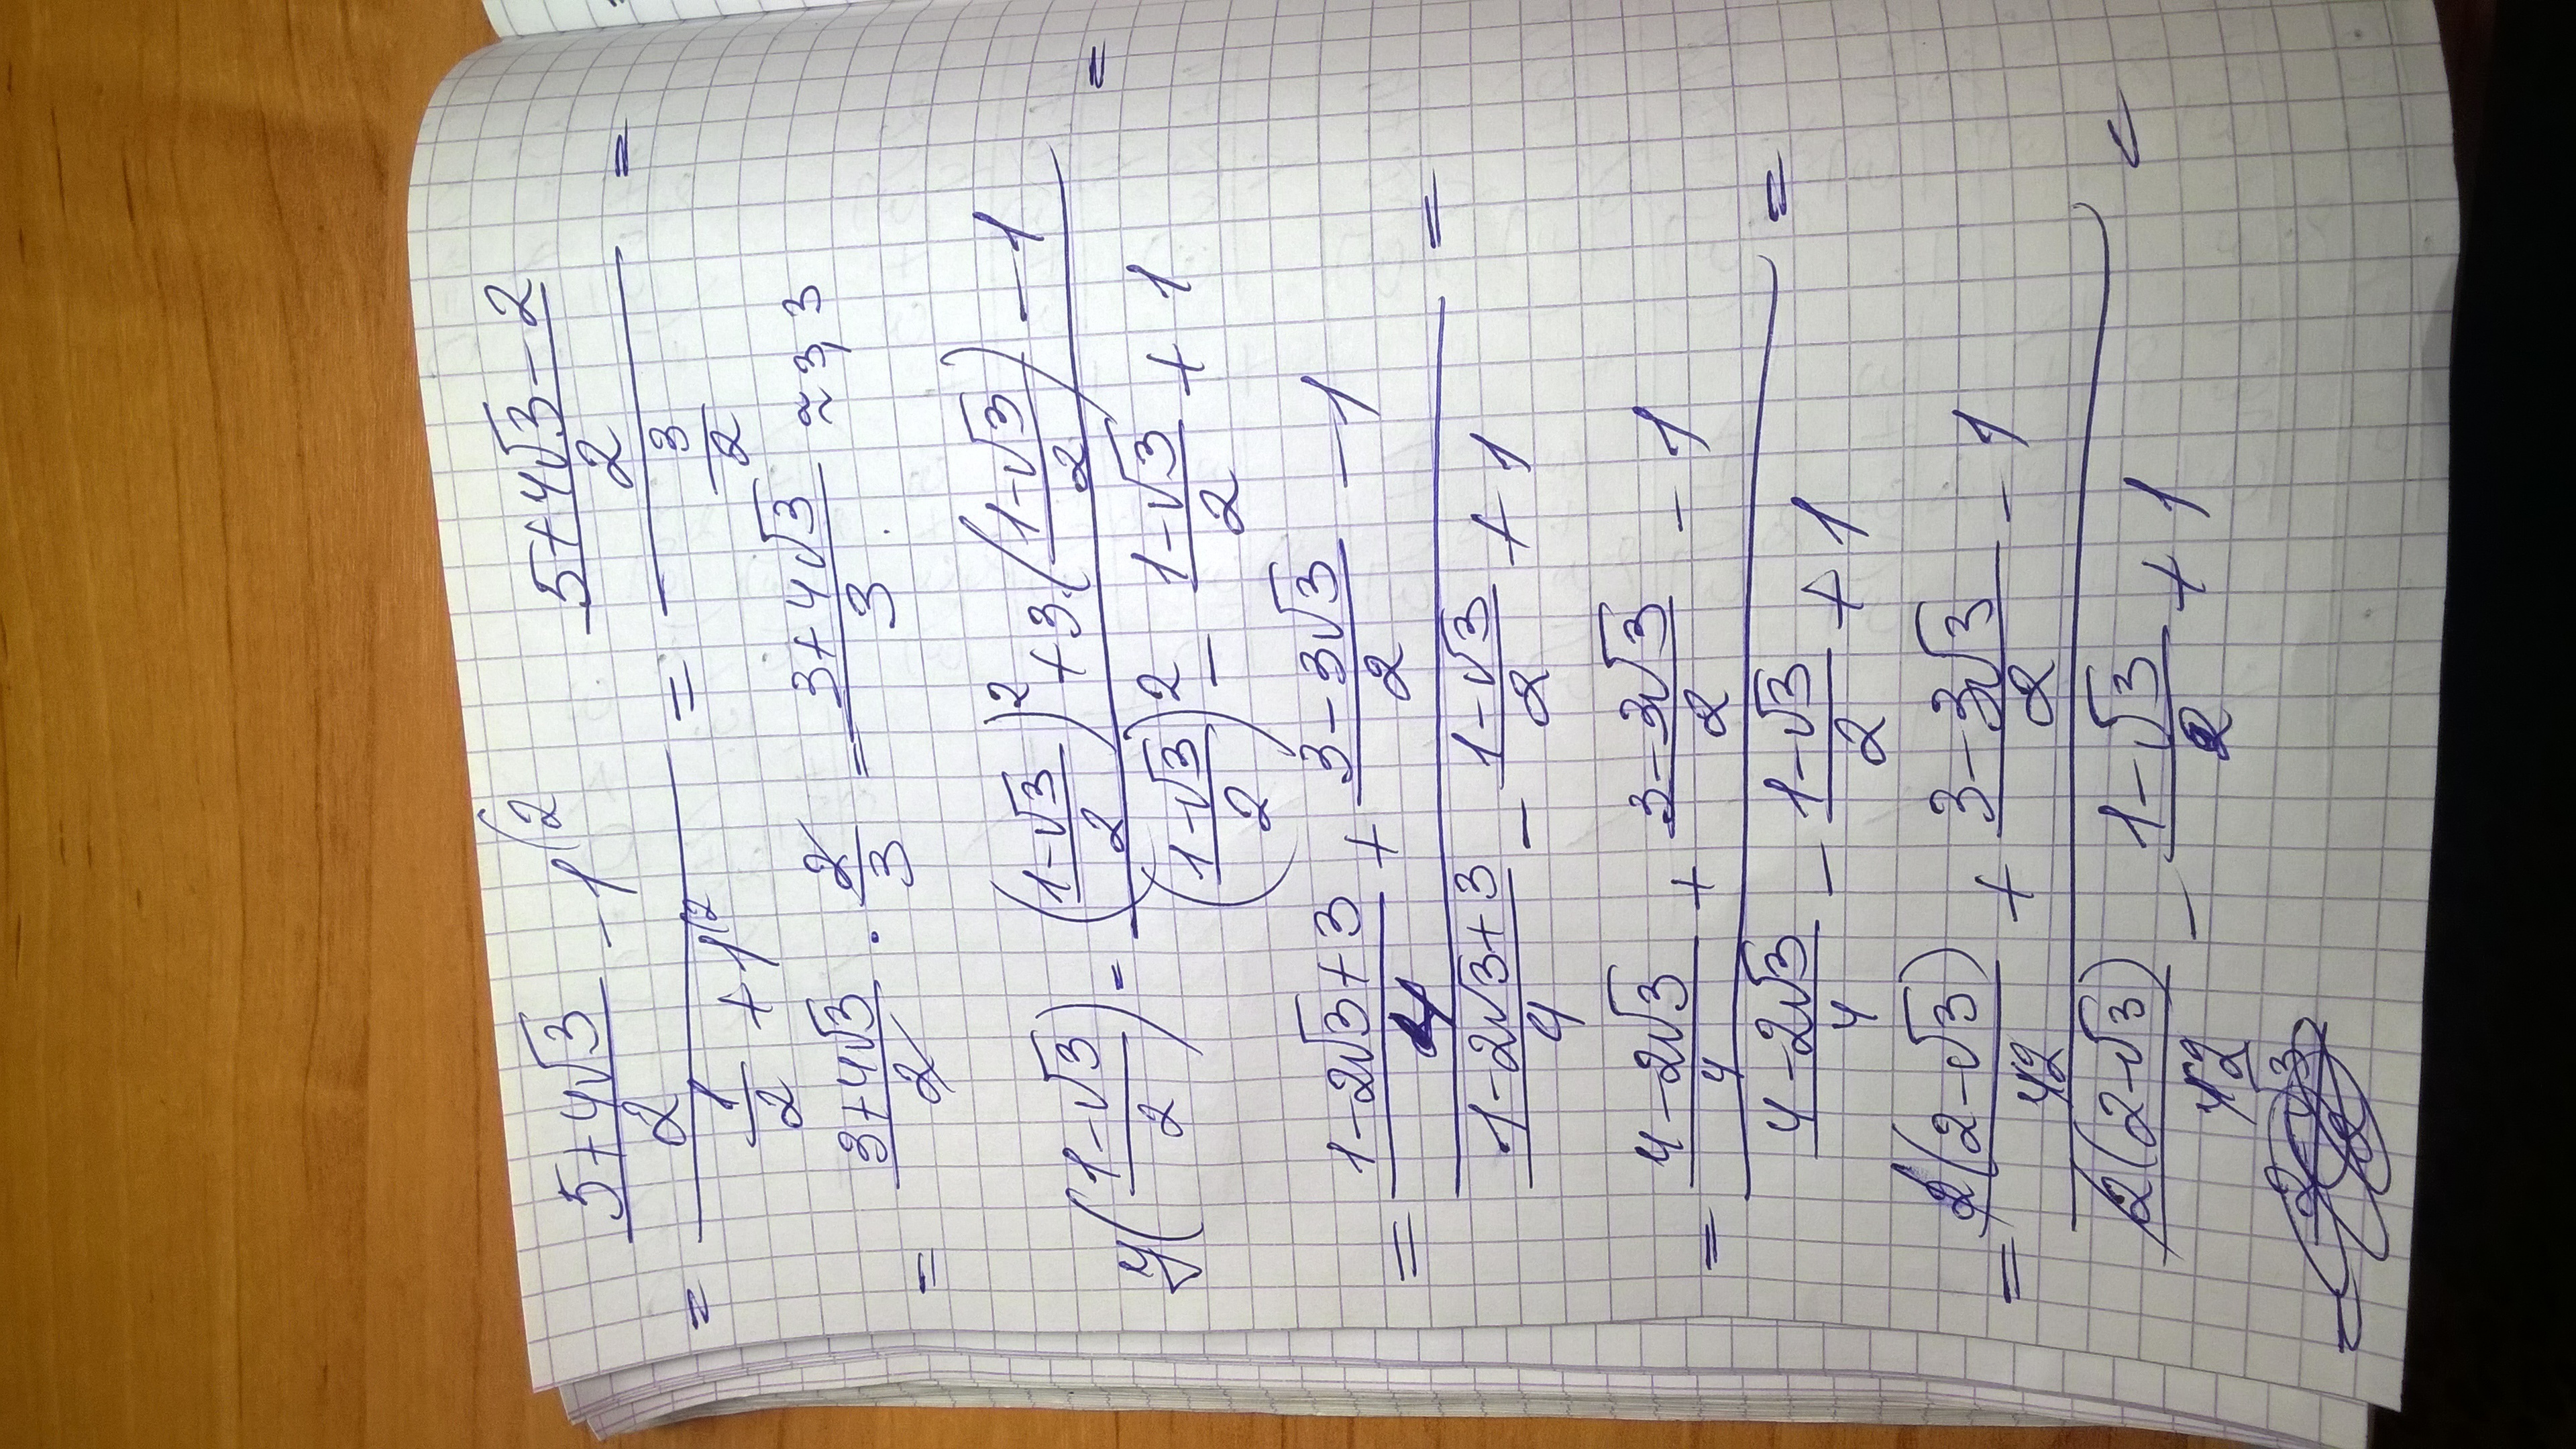 = (5+4√3)/2 - 1^(2 / (1/2 + 1^(2 = (5+4√3-2)/2 / 3/2 =
= (3+4√3)/2 · 2/3 = (3+4√3)/3 ≈ 3,3
y((1-√3)/2) = ((1-√3)/2)² + 3·((1-√3)/2) - 1 / ((1-√3)/2)² - (1-√3)/2 + 1 =
= (1-2√3+3)/4 + (3-3√3)/2 - 1 / (1-2√3+3)/4 - (1-√3)/2 + 1 =
= (4-2√3)/4 + (3-3√3)/2 - 1 / (4-2√3)/4 - (1-√3)/2 + 1 =
= 2(2-√3)/42 + (3-3√3)/2 - 1 / 2(2-√3)/42 - (1-√3)/2 + 1